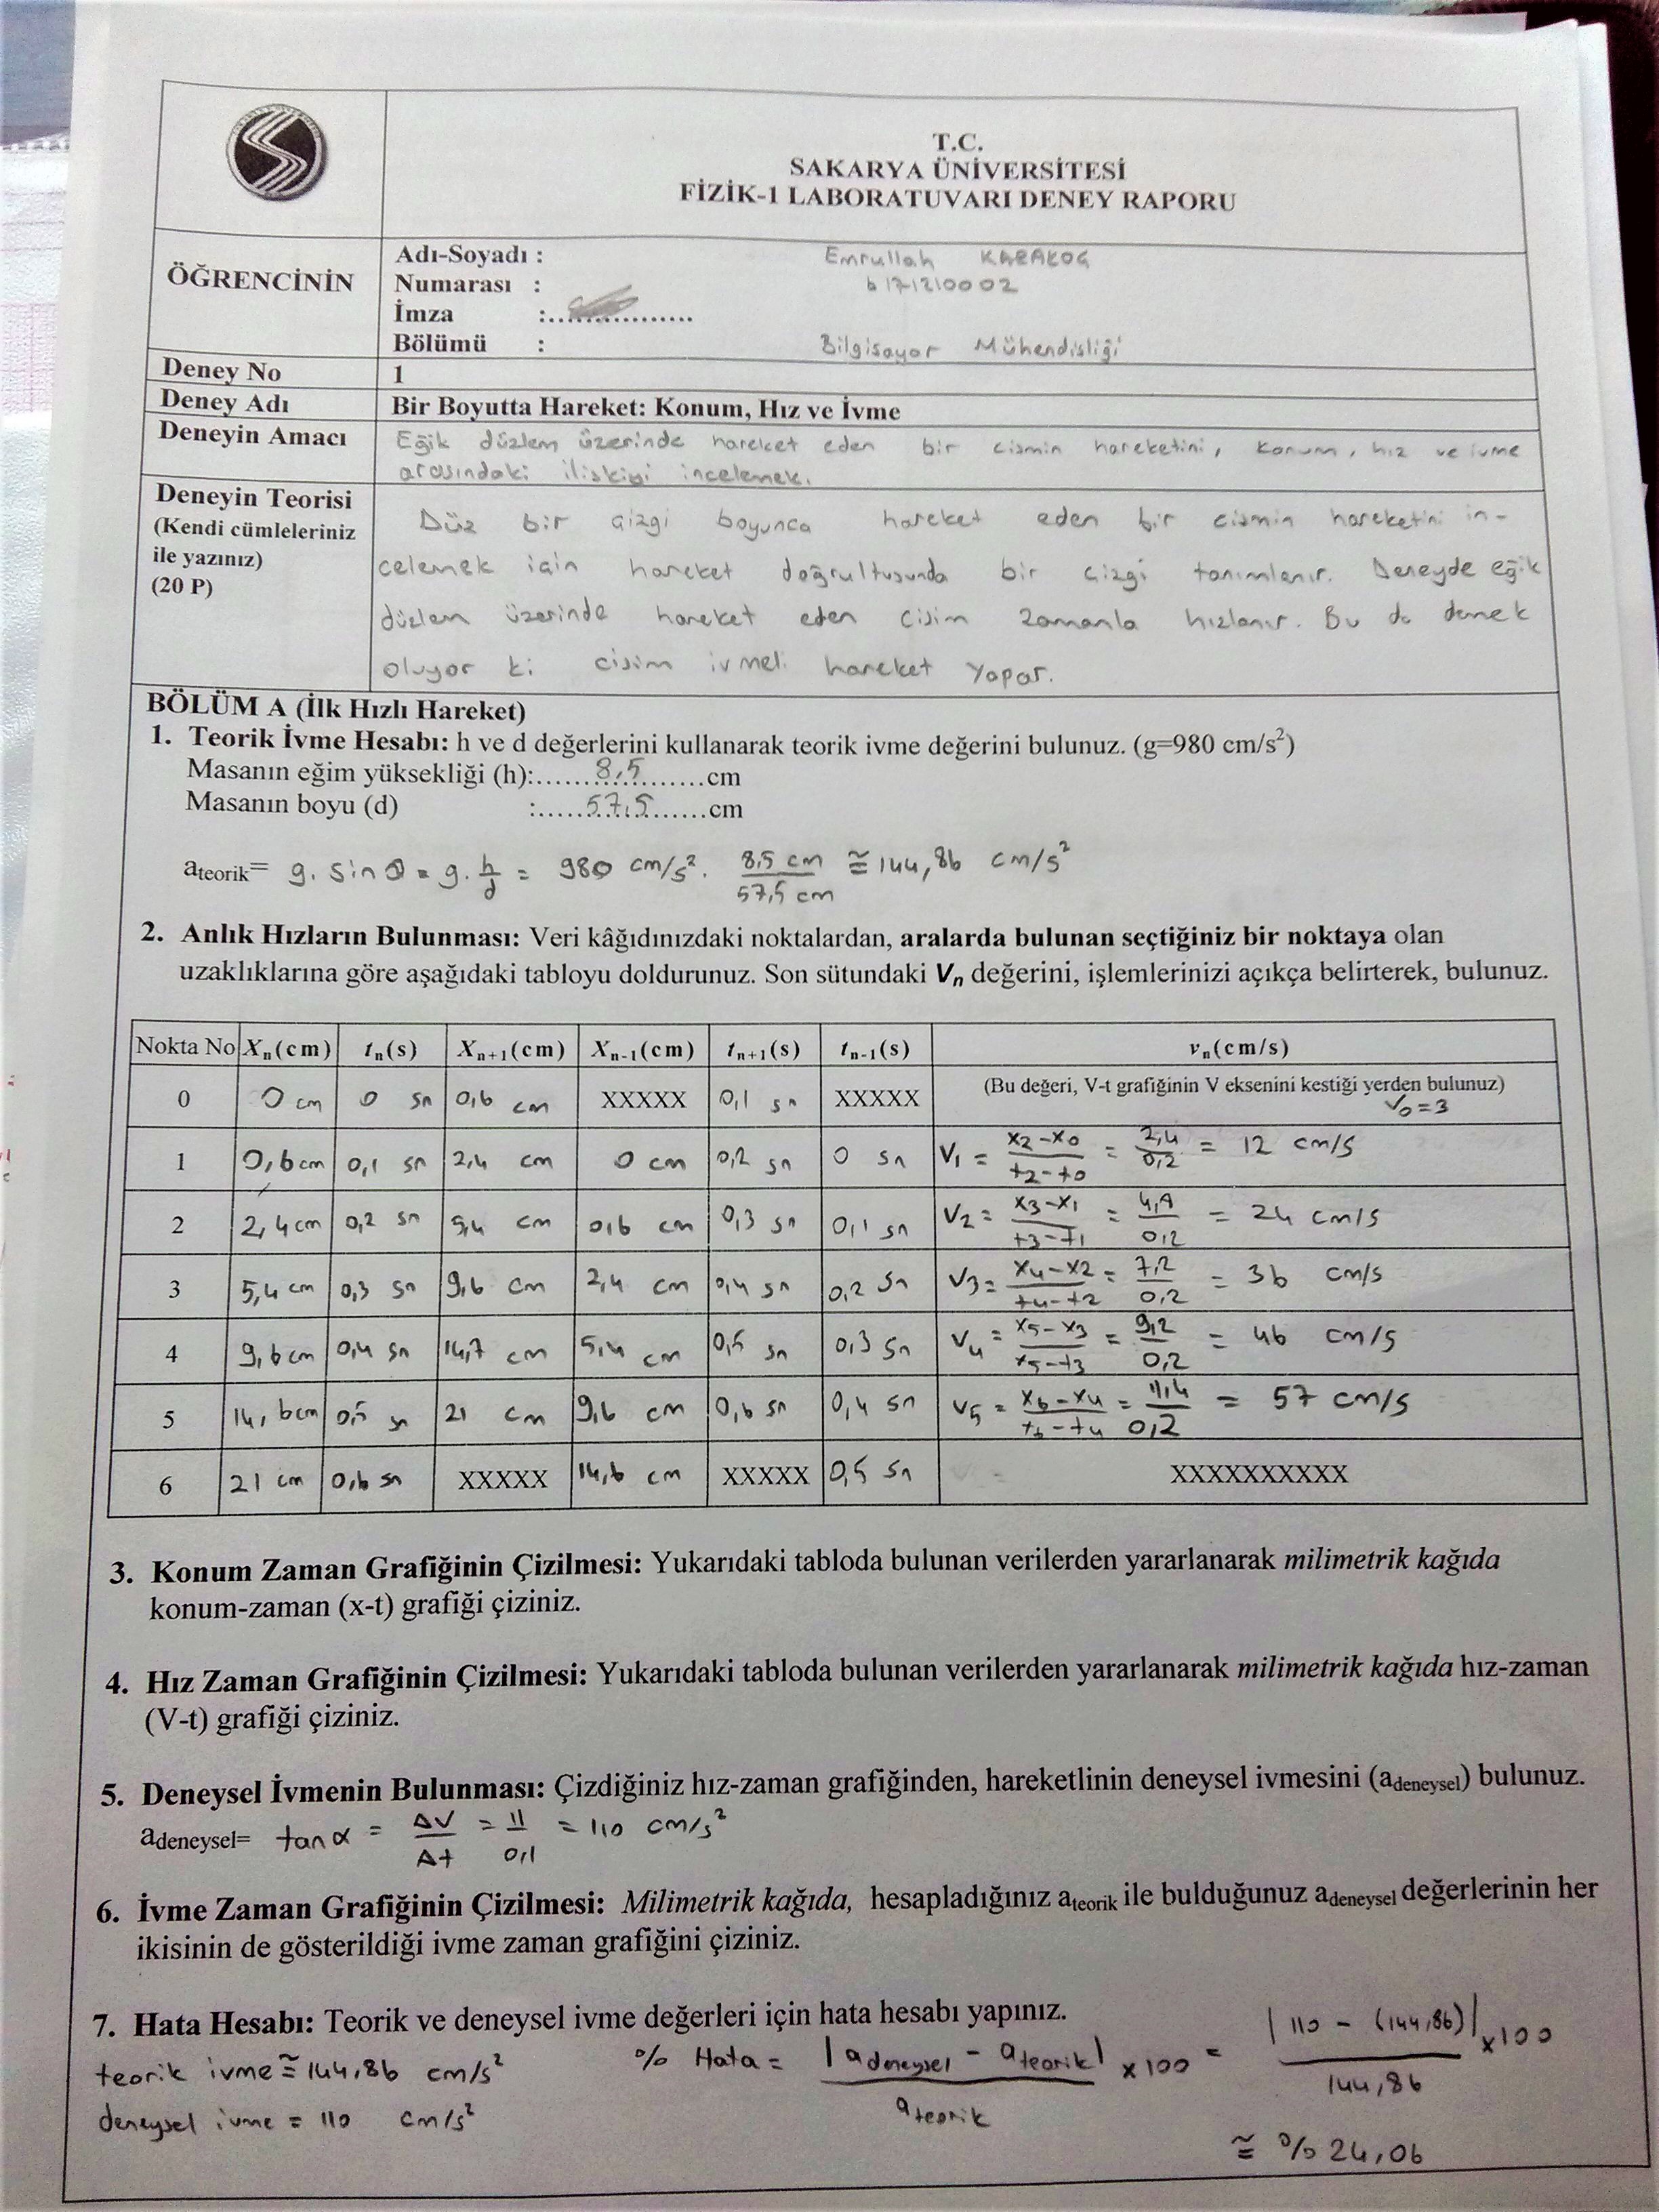 T.C.
SAKARYA ÜNİVERSİTESİ
FİZİK-1 LABORATUVARI DENEY RAPORU
ÖĞRENCİNİN
Adı-Soyadı : Emrullah KARAKOÇ
Numarası : b171210002
İmza :................
Bölümü : Bilgisayar Mühendisliği
Deney No 1
Deney Adı Bir Boyutta Hareket: Konum, Hız ve İvme
Deneyin Amacı Eğik düzlem üzerinde hareket eden bir cismin hareketini, konum, hız ve ivme
arasındaki ilişkiyi incelemek.
Deneyin Teorisi
(Kendi cümleleriniz
ile yazınız)
(20 P)
Düz bir çizgi boyunca hareket eden bir cismin hareketini in-
celemek için hareket doğrultusunda bir çizgi tanımlanır. Deneyde eğik
düzlem üzerinde hareket eden cisim zamanla hızlanır. Bu da demek
oluyor ki cisim ivmeli hareket yapar.
BÖLÜM A (İlk Hızlı Hareket)
1. Teorik İvme Hesabı: h ve d değerlerini kullanarak teorik ivme değerini bulunuz. (g=980 cm/s²)
Masanın eğim yüksekliği (h):......8,5......cm
Masanın boyu (d) :.....57,5.......cm
a_teorik= g. sinθ = g. h/d = 980 cm/s². 8,5 cm / 57,5 cm ≅ 144,86 cm/s²
2. Anlık Hızların Bulunması: Veri kâğıdınızdaki noktalardan, aralarda bulunan seçtiğiniz bir noktaya olan
uzaklıklarına göre aşağıdaki tabloyu doldurunuz. Son sütundaki Vn değerini, işlemlerinizi açıkça belirterek, bulunuz.
Nokta No Xn(cm) tn(s) Xn+1(cm) Xn-1(cm) tn+1(s) tn-1(s) vn(cm/s)
0 0 cm 0 sn 0,6 cm XXXXX 0,1 sn XXXXX (Bu değeri, V-t grafiğinin V eksenini kestiği yerden bulunuz) V0=3
1 0,6cm 0,1 sn 2,4 cm 0 cm 0,2 sn 0 sn V1 = x2-x0 / t2-t0 = 2,4 / 0,2 = 12 cm/s
2 2,4cm 0,2 sn 5,4 cm 0,6 cm 0,3 sn 0,1 sn V2 = x3-x1 / t3-t1 = 4,8 / 0,2 = 24 cm/s
3 5,4 cm 0,3 sn 9,6 cm 2,4 cm 0,4 sn 0,2 sn V3 = x4-x2 / t4-t2 = 7,2 / 0,2 = 36 cm/s
4 9,6cm 0,4 sn 14,7 cm 5,4 cm 0,5 sn 0,3 sn V4 = x5-x3 / x5-t3 = 9,2 / 0,2 = 46 cm/s
5 14,6cm 0,5 sn 21 cm 9,6 cm 0,6 sn 0,4 sn V5 = x6-x4 / t6-t4 = 11,4 / 0,2 = 57 cm/s
6 21 cm 0,6 sn XXXXX 14,6 cm XXXXX 0,5 sn XXXXXXXXXX
3. Konum Zaman Grafiğinin Çizilmesi: Yukarıdaki tabloda bulunan verilerden yararlanarak milimetrik kağıda
konum-zaman (x-t) grafiği çiziniz.
4. Hız Zaman Grafiğinin Çizilmesi: Yukarıdaki tabloda bulunan verilerden yararlanarak milimetrik kağıda hız-zaman
(V-t) grafiği çiziniz.
5. Deneysel İvmenin Bulunması: Çizdiğiniz hız-zaman grafiğinden, hareketlinin deneysel ivmesini (a_deneysel) bulunuz.
a_deneysel= tanα = ΔV / Δt = 11 / 0,1 = 110 cm/s²
6. İvme Zaman Grafiğinin Çizilmesi: Milimetrik kağıda, hesapladığınız a_teorik ile bulduğunuz a_deneysel değerlerinin her
ikisinin de gösterildiği ivme zaman grafiğini çiziniz.
7. Hata Hesabı: Teorik ve deneysel ivme değerleri için hata hesabı yapınız.
teorik ivme ≅ 144,86 cm/s²
deneysel ivme = 110 cm/s²
% Hata = |a deneysel - a teorik| / a teorik x 100 = |110 - (144,86)| / 144,86 x100
≅ %24,06